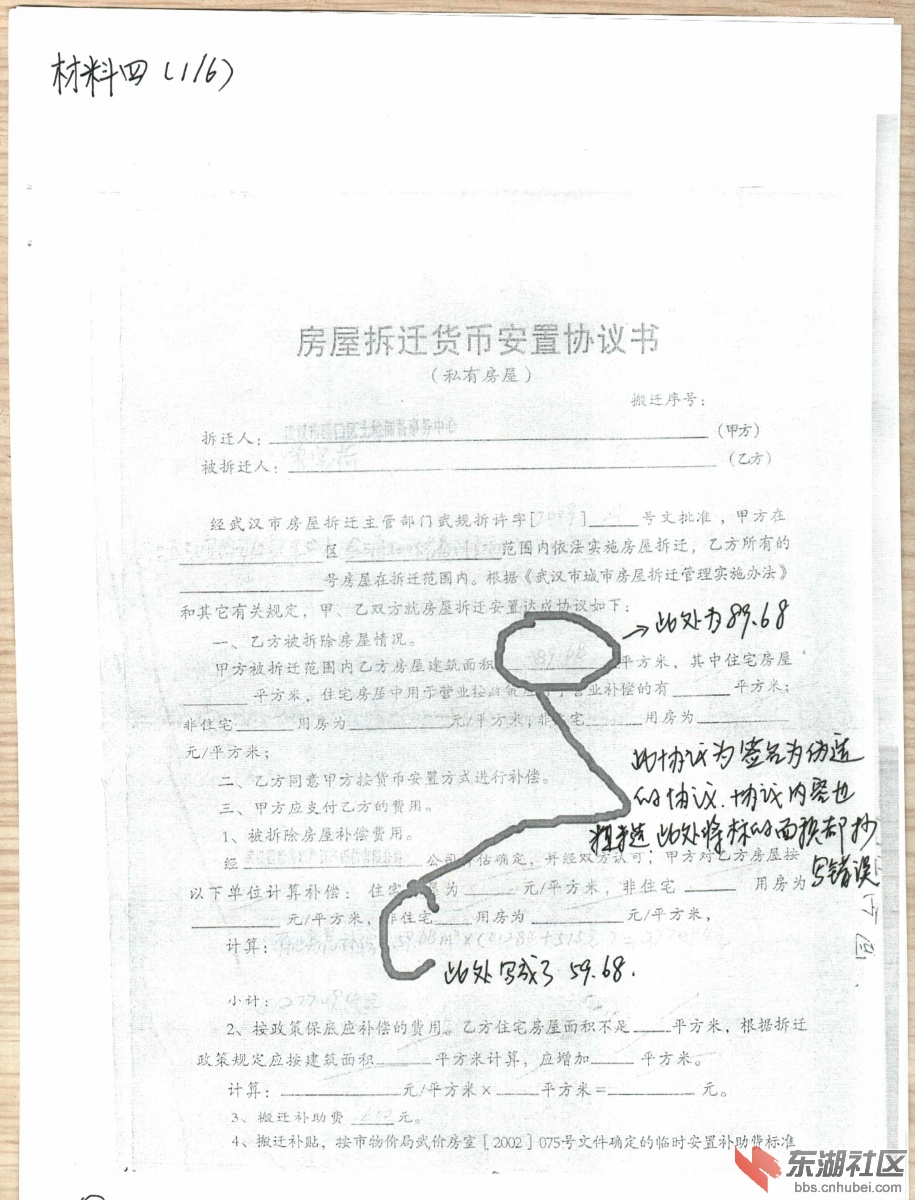 材料四(1/6)
房屋拆迁货币安置协议书
(私有房屋)
搬迁序号:
拆迁人: 土地储备事务中心 (甲方)
被拆迁人: (乙方)
经武汉市房屋拆迁主管部门武规拆许字[ ] 号文批准,甲方在
区 范围内依法实施房屋拆迁,乙方所有的
号房屋在拆迁范围内。根据《武汉市城市房屋拆迁管理实施办法》
和其它有关规定,甲、乙双方就房屋拆迁安置达成协议如下:
→此处为89.68
一、乙方被拆除房屋情况。
甲方被拆迁范围内乙方房屋建筑面积 89.68 平方米,其中住宅房屋
平方米,住宅房屋中用于营业按政策 营业补偿的有 平方米;
非住宅 用房为 元/平方米;非住宅 用房为
元/平方米;
此协议为签名为伪造
的协议.协议内容也
粗糙 此处将 的面积却抄
写错误
二、乙方同意甲方按货币安置方式进行补偿。
三、甲方应支付乙方的费用。
1、被拆除房屋补偿费用。
经 公司评估确定,并经双方认可;甲方对乙方房屋按
以下单位计算补偿: 住宅 为 元/平方米,非住宅 用房为
元/平方米,非住宅 用房为 元/平方米,
计算: 59.68m²×(4128+515 )=277094元
此处写成了 59.68.
小计: 277094元
2、按政策保底应补偿的费用。乙方住宅房屋面积不足 平方米,根据拆迁
政策规定应按建筑面积 平方米计算,应增加 平方米。
计算: 元/平方米× 平方米= 元。
3、搬迁补助费 元。
4、搬迁补贴,按市物价局武价房室[2002]075号文件确定的临时安置补助费标准
东湖社区
bbs.cnhubei.com